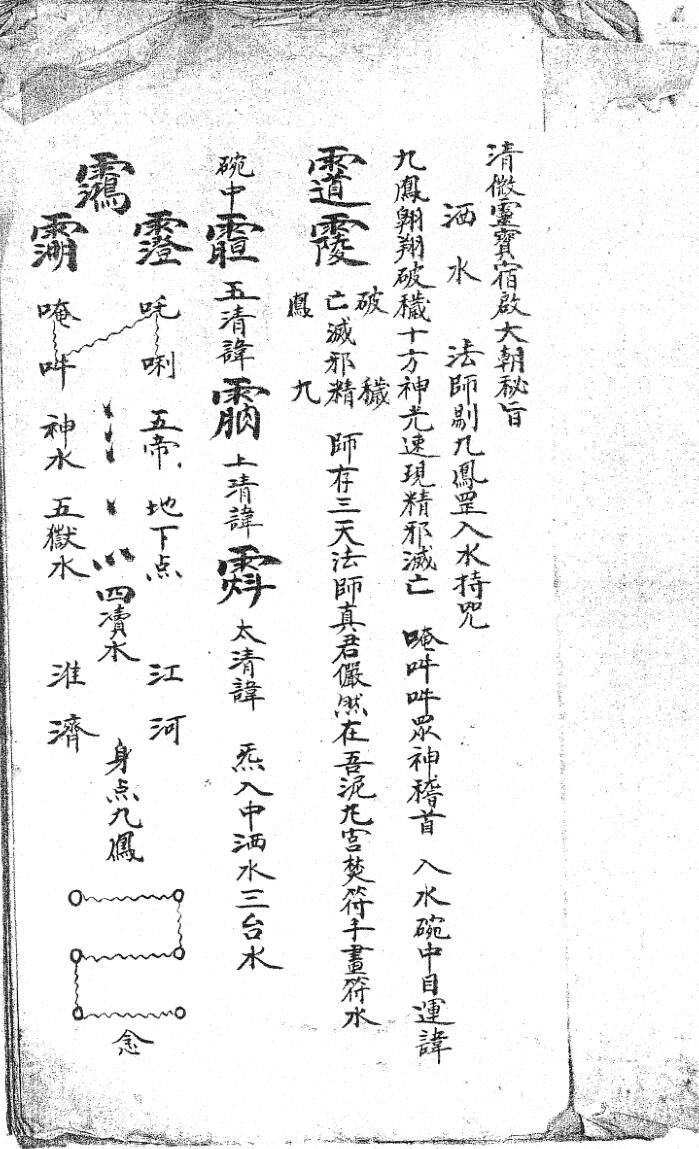 清微靈寶宿啟大朝秘旨
洒水 法師剔九鳳罡入水持咒
九鳳翱翔破穢十方神光速現精邪滅亡 唵吽吽眾神稽首 入水碗中目運諱
破穢
亡滅邪精 師存三天法師真君儼然在吾泥丸宮焚符手畫符水
鳳 九
碗中 五清諱 上清諱 太清諱 炁入中洒水三台水
吒唎 五帝 地下点 江河
四瀆水 身点九鳳
唵吽 神水 五獄水 淮濟
念